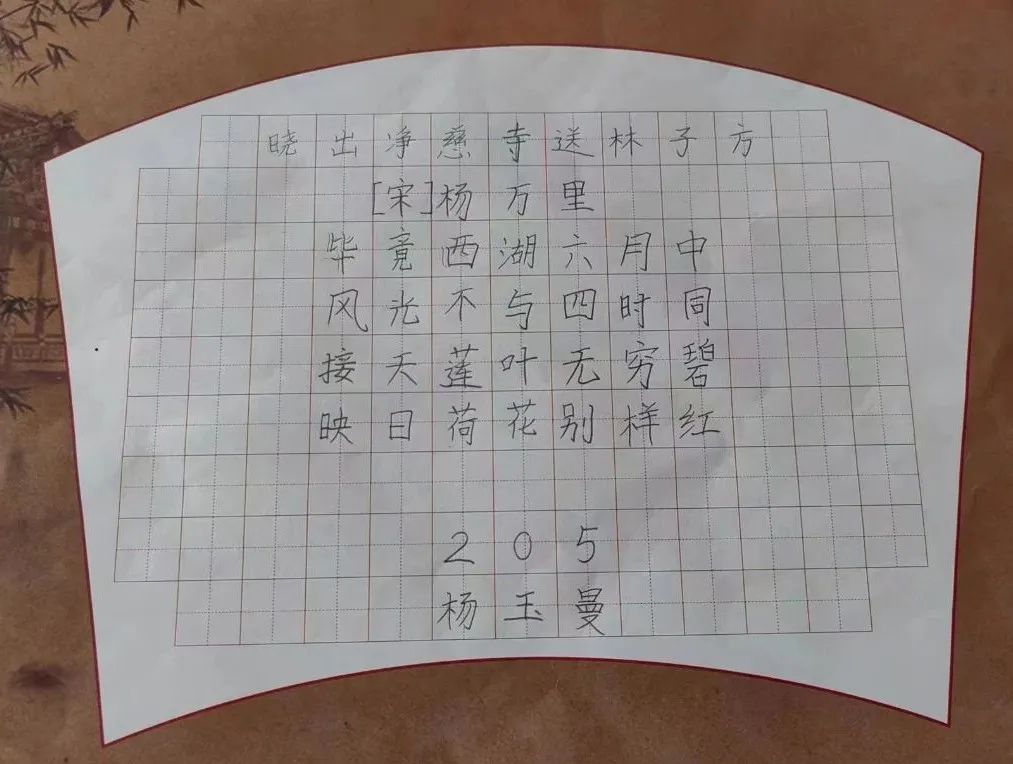 晓出净慈寺送林子方
[宋]杨万里
毕竟西湖六月中
风光不与四时同
接天莲叶无穷碧
映日荷花别样红
205
杨玉曼